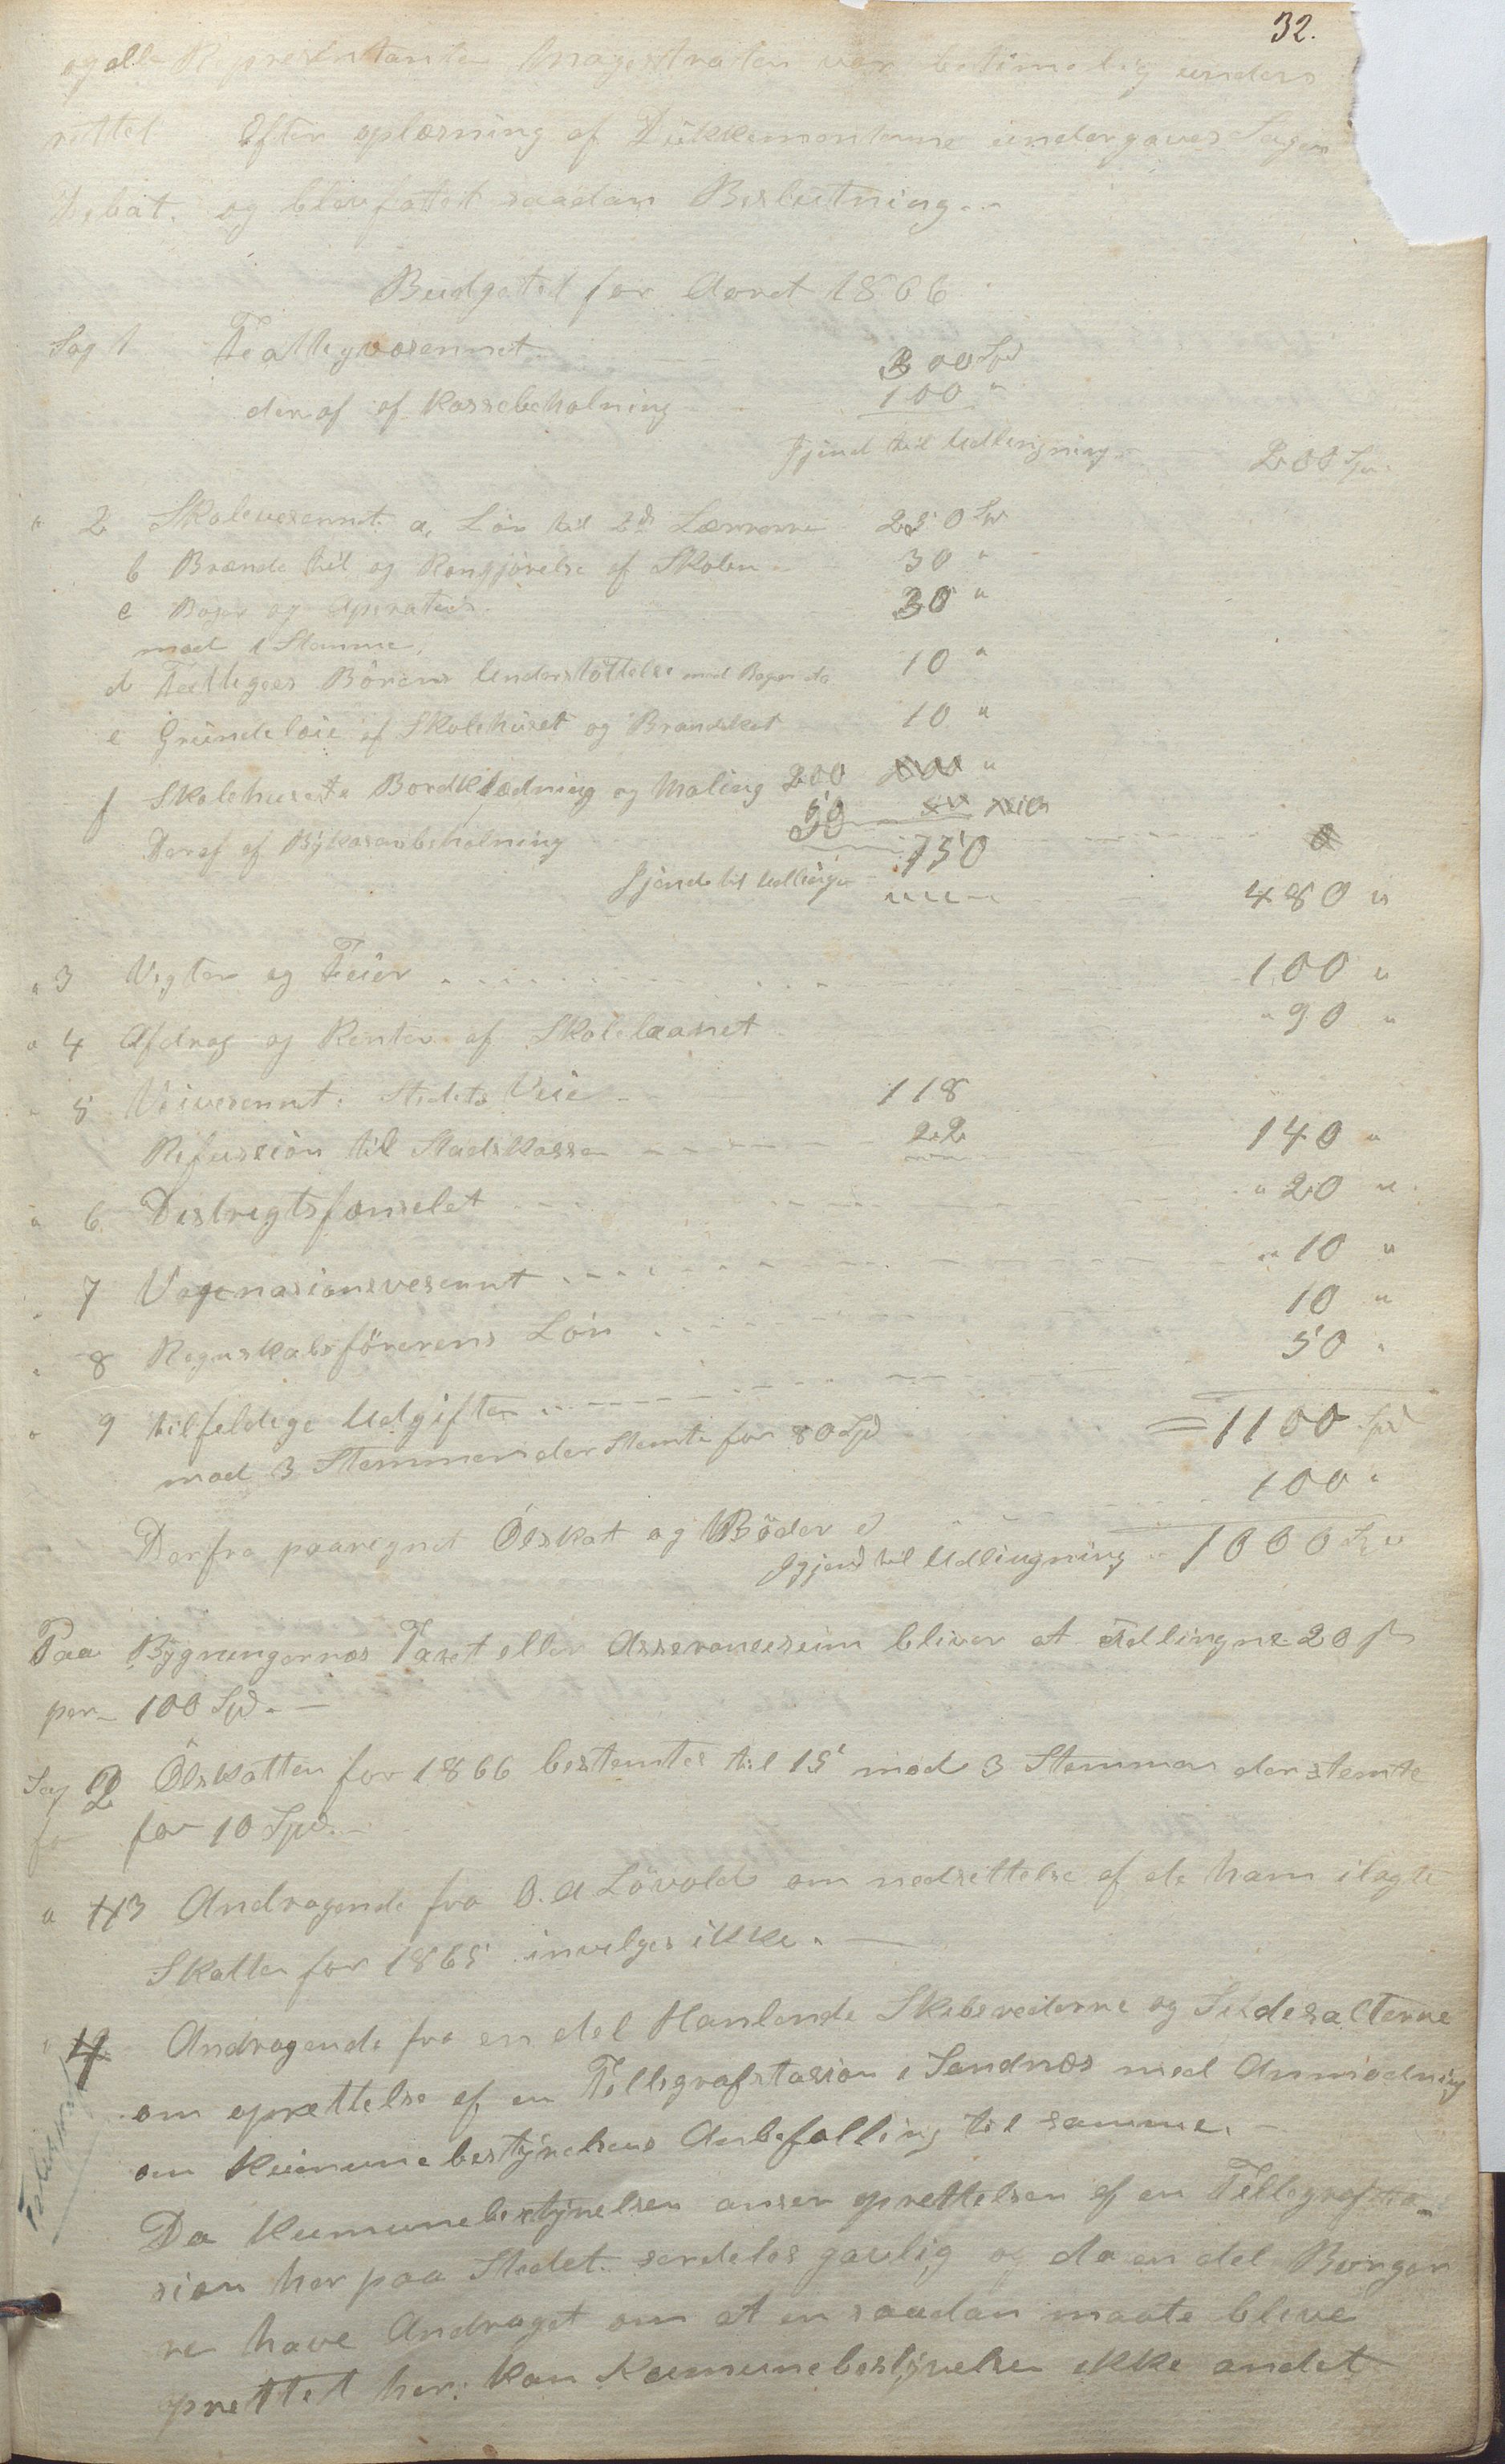 32.
og alle Representanter Magestraten var betimelig under
rettet Efter oplæsning af Dukkementerne undergaves Sagen
Debat. og blev fattet saadan Beslutning. -
Budgetet for Aaret 1866
Sag 1 Fattigvæsennet 300 Spd
deraf af Kassebeholning 100 "
Igjend til Udligning. 200 Spd.
" 2 Skolevesennet a, Lön til 2de Lærerne 250 Spd
b Brænde til og Rengjörelse af Skolen - 30 "
c Böger og Aperater. 30 "
mod 1 Stemme.
d Fattiges Börens Understöttelse med Böger do 10 "
e Grundeleie af Skolehuset og Brandskat 10 "
f Skolehusets Bordklædning og Maling 200 "
Deraf af Bykassenbeholning 50
Igjend til Udligning 150 480 "
" 3 Vegter og Feier 100 "
" 4 Afdrag og Renter af Skolelaanet " 90 "
" 5 Veivesennet. Stedets Veie - 118
Refussion til Stadskassen 22 140 "
" 6 Destregtsfænselet " 20 "
" 7 Vagsinasionsvesennet " 10 "
" 8 Regnskabsförerens Lön 10 "
" 9 tilfeldige Udgifter 50 "
mod 3 Stemmer der stemte for 80 Spd = 1100 Spd
Derfra paaregnet Ölskat og Böder 100 "
Igjend til Udligning " 1000 Spd
Paa Bygningernes Taxt eller Asseransesum bliver at udlingne 20 s
per 100 Spd. -
Sag 2 Ölskatten for 1866 bestemtes til 15 mod 3 Stemmer der stemte
for for 10 Spd. -
" 3 Andragende fra O. A Lövold om nedsettelse af de ham ilagte
Skatter for 1865 invelges ikke. -
" 4 Andragende fra en del Hanlende Skibsreederne og Sildesalterne
om oprettelse af en Tellegrafstasion i Sandnæs med Anmodning
om Kumunebestyrelsens Anbefalling til samme. -
Da Kumunebestyrelsen anser oprettelsen af en Tellegrafsta-
sion her paa Stedet serdeles gavlig og da en del Borger
re have Andraget om at en saadan maate blive
oprettet her: Kan Kumunebestyrelsen ikke andet